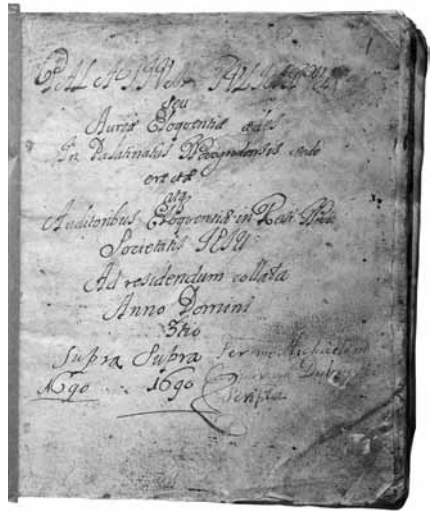 seu
Aureæ Eloquentiæ ædes
In Palatinatus
erectæ
atq
Auditoribus Eloquentiæ in Resi
Societatis IESU
Ad residendum collata
Anno Domini
3tio
Supra Supra Per me Michaelem
1690 1690
Scripta